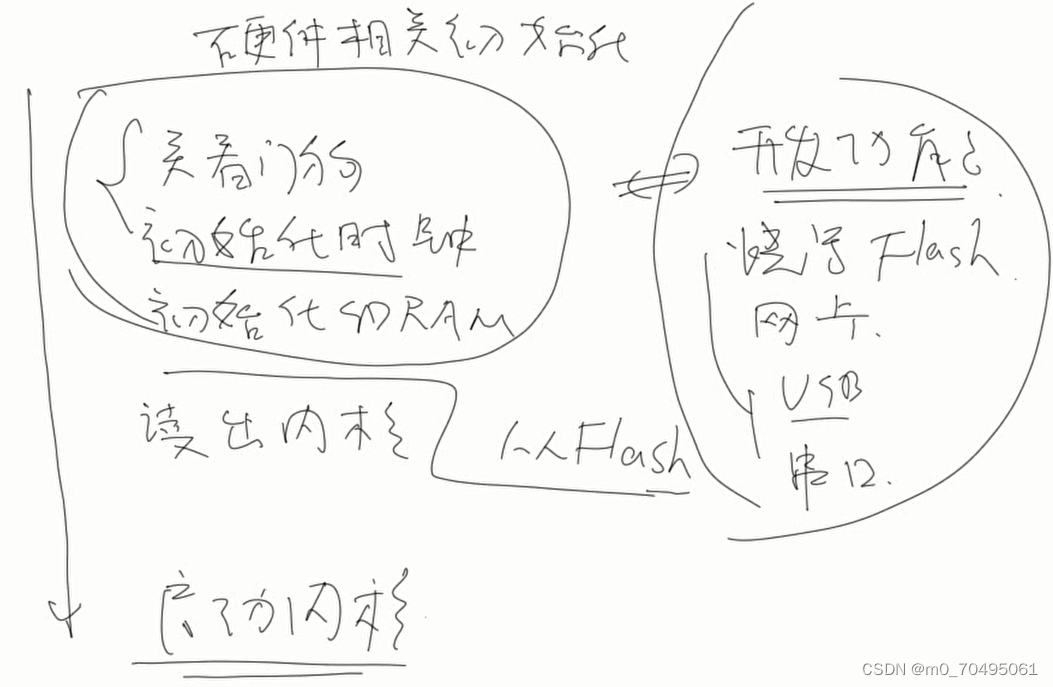 硬件相关初始化
关看门狗
初始化时钟
初始化SDRAM
读出内核
从Flash
启动内核
开发功能
烧写Flash
网卡.
USB
串口.
CSDN @m0_70495061